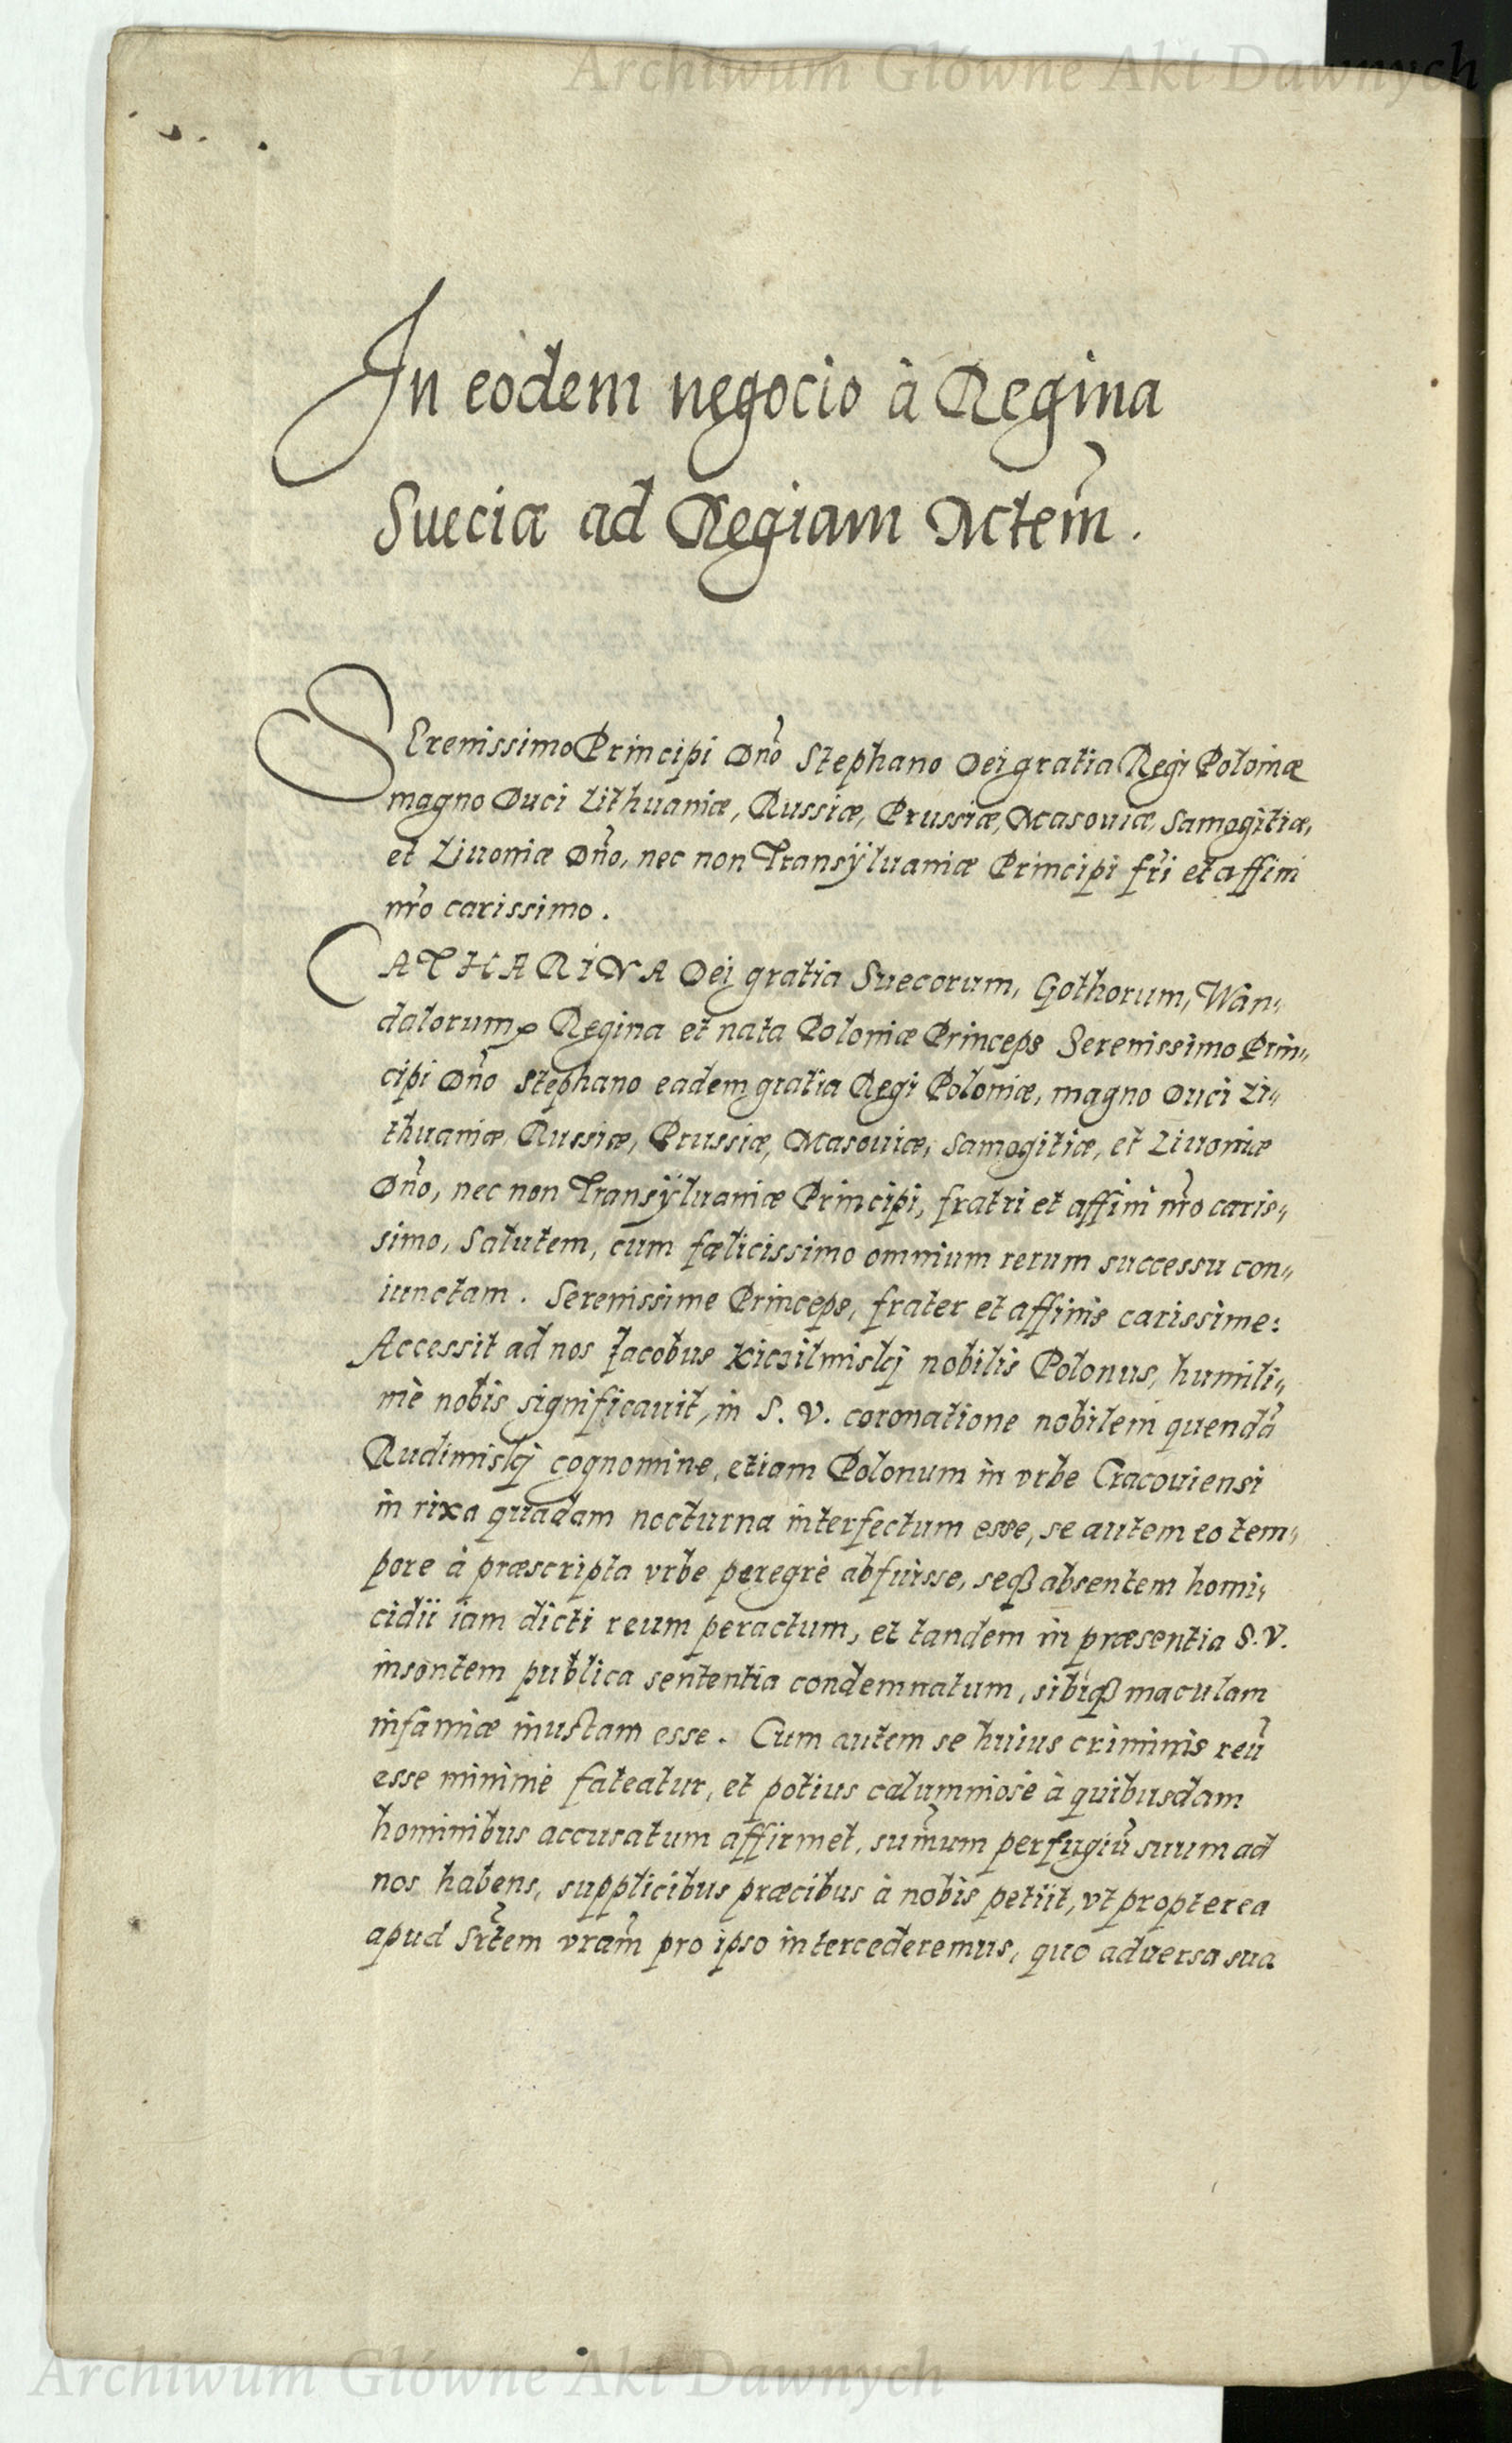 Archiwum Główne Akt Dawnych
In eodem negocio à Regina
Sueciæ ad Regiam Mctem̃.
SErenissimo Principi Dño Stephano Dei gratia Regi Poloniæ
magno Duci Lithuaniæ, Russiæ, Prussiæ, Masouiæ, Samogitiæ,
et Liuoniæ Dño, nec non Transÿluaniæ Principi fr̃i et affini
nr̃o carissimo.
CATHARINA Dei gratia Suecorum, Gothorum, Wan„
dalorumꝙ Regina et nata Poloniæ Princeps Serenissimo Prin„
cipi Dño Stephano eadem gratia Regi Poloniæ, magno Duci Li„
thuaniæ, Russiæ, Prussiæ, Masouiæ, Samogitiæ, et Liuoniæ
Dño, nec non Transÿluaniæ Principi, fratri et affini nr̃o caris„
simo, Salutem, cum fœlicissimo omnium rerum successu con„
iunctam. Serenissime Princeps, frater et affinis carissime:
Accessit ad nos Jacobus Kiczilmiskj nobilis Polonus, humili„
mè nobis significauit, in S. V. coronatione nobilem quendã
Rudimiskj cognomine, etiam Polonum in vrbe Cracouiensi
in rixa quadam nocturna interfectum esse, se autem eo tem„
pore à præscripta vrbe peregrè abfuisse, seqȝ absentem homi„
cidii iam dicti reum peractum, et tandem in præsentia S. V.
insontem publica sententia condemnatum, sibiqȝ maculam
infamiæ inustam esse. Cum autem se huius criminis reũ
esse minimè fateatur, et potius calumniosè à quibusdam
hominibus accusatum affirmet, sum̃um perfugiũ suum ad
nos habens, supplicibus præcibus à nobis petiit, vt propterea
apud Sr̃tem vram̃ pro ipso intercederemus, quo aduersa sua
Archiwum Główne Akt Dawnych